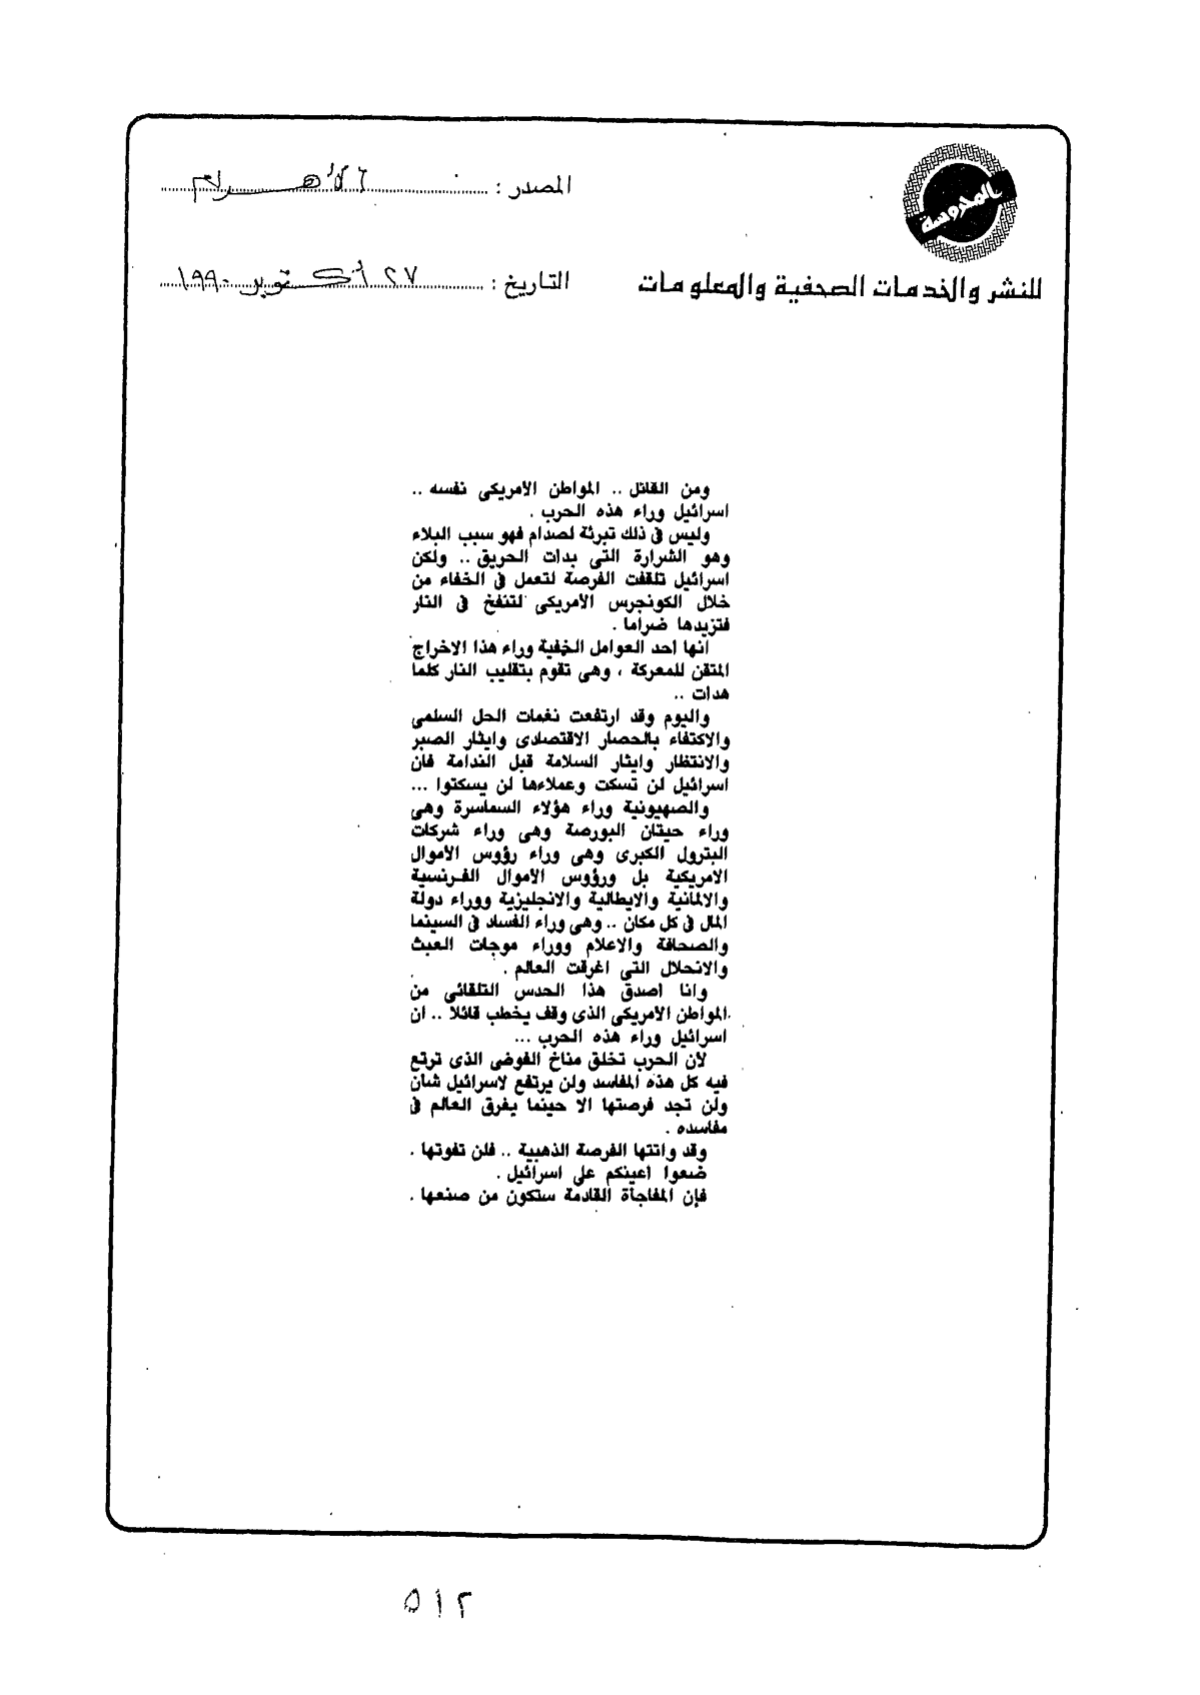 المحروسة
للنشر والخدمات الصحفية والمعلومات
المصدر : الأهرام
التاريخ : ٢٧ أكتوبر ١٩٩٠
ومن القائل .. المواطن الامريكى نفسه ..
اسرائيل وراء هذه الحرب .
وليس فى ذلك تبرئة لصدام فهو سبب البلاء
وهو الشرارة التى بدات الحريق .. ولكن
اسرائيل تلقفت الفرصة لتعمل فى الخفاء من
خلال الكونجرس الامريكى لتنفخ فى النار
فتزيدها ضراما .
انها احد العوامل الخفية وراء هذا الاخراج
المتقن للمعركة ، وهى تقوم بتقليب النار كلما
هدات ..
واليوم وقد ارتفعت نغمات الحل السلمى
والاكتفاء بالحصار الاقتصادى وايثار الصبر
والانتظار وايثار السلامة قبل الندامة فان
اسرائيل لن تسكت وعملاءها لن يسكتوا ...
والصهيونية وراء هؤلاء السماسرة وهى
وراء حيتان البورصة وهى وراء شركات
البترول الكبرى وهى وراء رؤوس الاموال
الامريكية بل ورؤوس الاموال الفرنسية
والالمانية والايطالية والانجليزية ووراء دولة
المال فى كل مكان .. وهى وراء الفساد فى السينما
والصحافة والاعلام ووراء موجات العبث
والانحلال التى اغرقت العالم .
وانا اصدق هذا الحدس التلقائى من
المواطن الامريكى الذى وقف يخطب قائلا .. ان
اسرائيل وراء هذه الحرب ...
لان الحرب تخلق مناخ الفوضى الذى ترتع
فيه كل هذه المفاسد ولن يرتفع لاسرائيل شان
ولن تجد فرصتها الا حينما يغرق العالم فى
مفاسده .
وقد واتتها الفرصة الذهبية .. فلن تفوتها .
ضعوا اعينكم على اسرائيل .
فإن المفاجأة القادمة ستكون من صنعها .
٥١٢